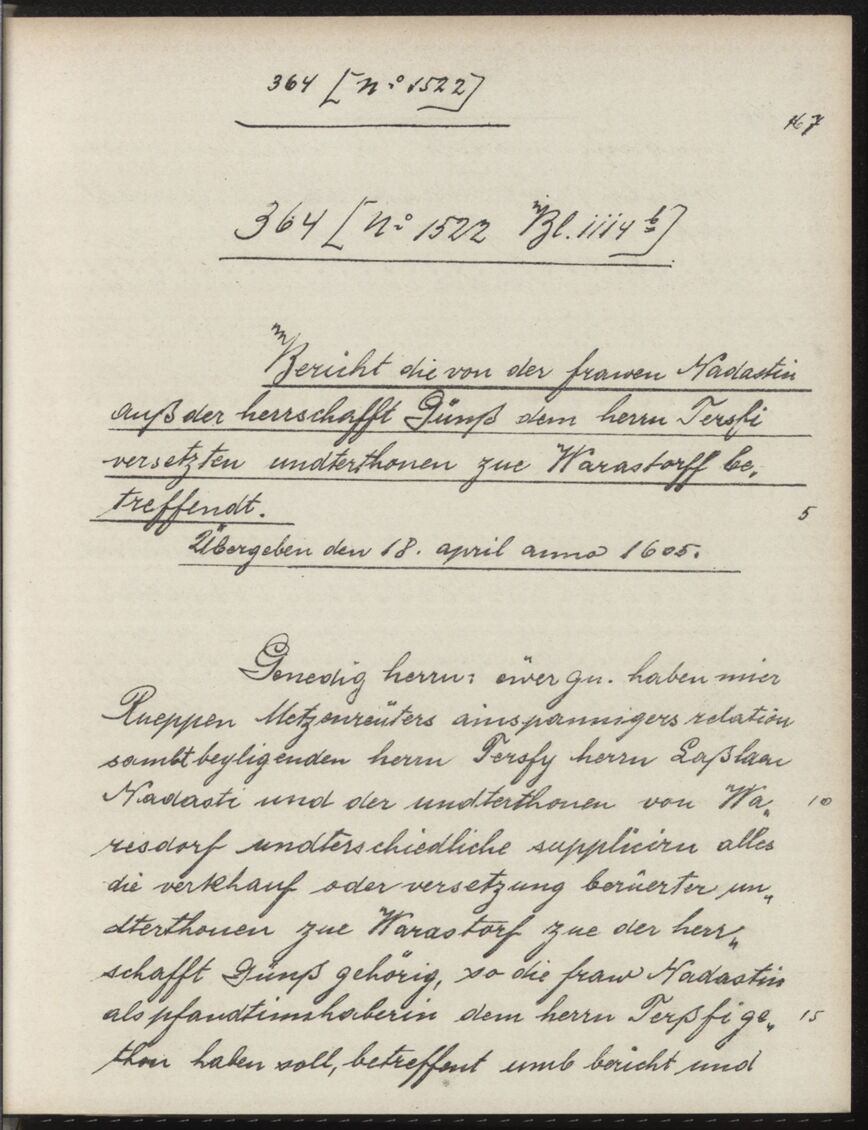 364 [No 1522]
167
364 [No 1522 Bl. iiii4 b]
Bericht die von der frawen Nadastin
auß der herrschafft Günß dem herrn Tersfi
versetzten undterthonen zue Warastorff be„
treffendt.
5
Übergeben den 18. april anno 1605.
Genedig herrn: eüwer gn. haben mier
Rueppen Metzenreüters ainspannigers relation
sambt beyligenden herrn Tersfy herrn Laßlaw
Nadasti und der undterthonen von Wa„
10
resdorf undterschiedliche supplicirn alles
die verkhauf oder versetzung berüerter un„
dterthonen zue Warastorf zue der herr„
schafft Günß gehörig, so die fraw Nadastin
als pfandtinnhaberin dem herrn Terßfi ge„
15
thon haben soll, betreffent umb bericht und